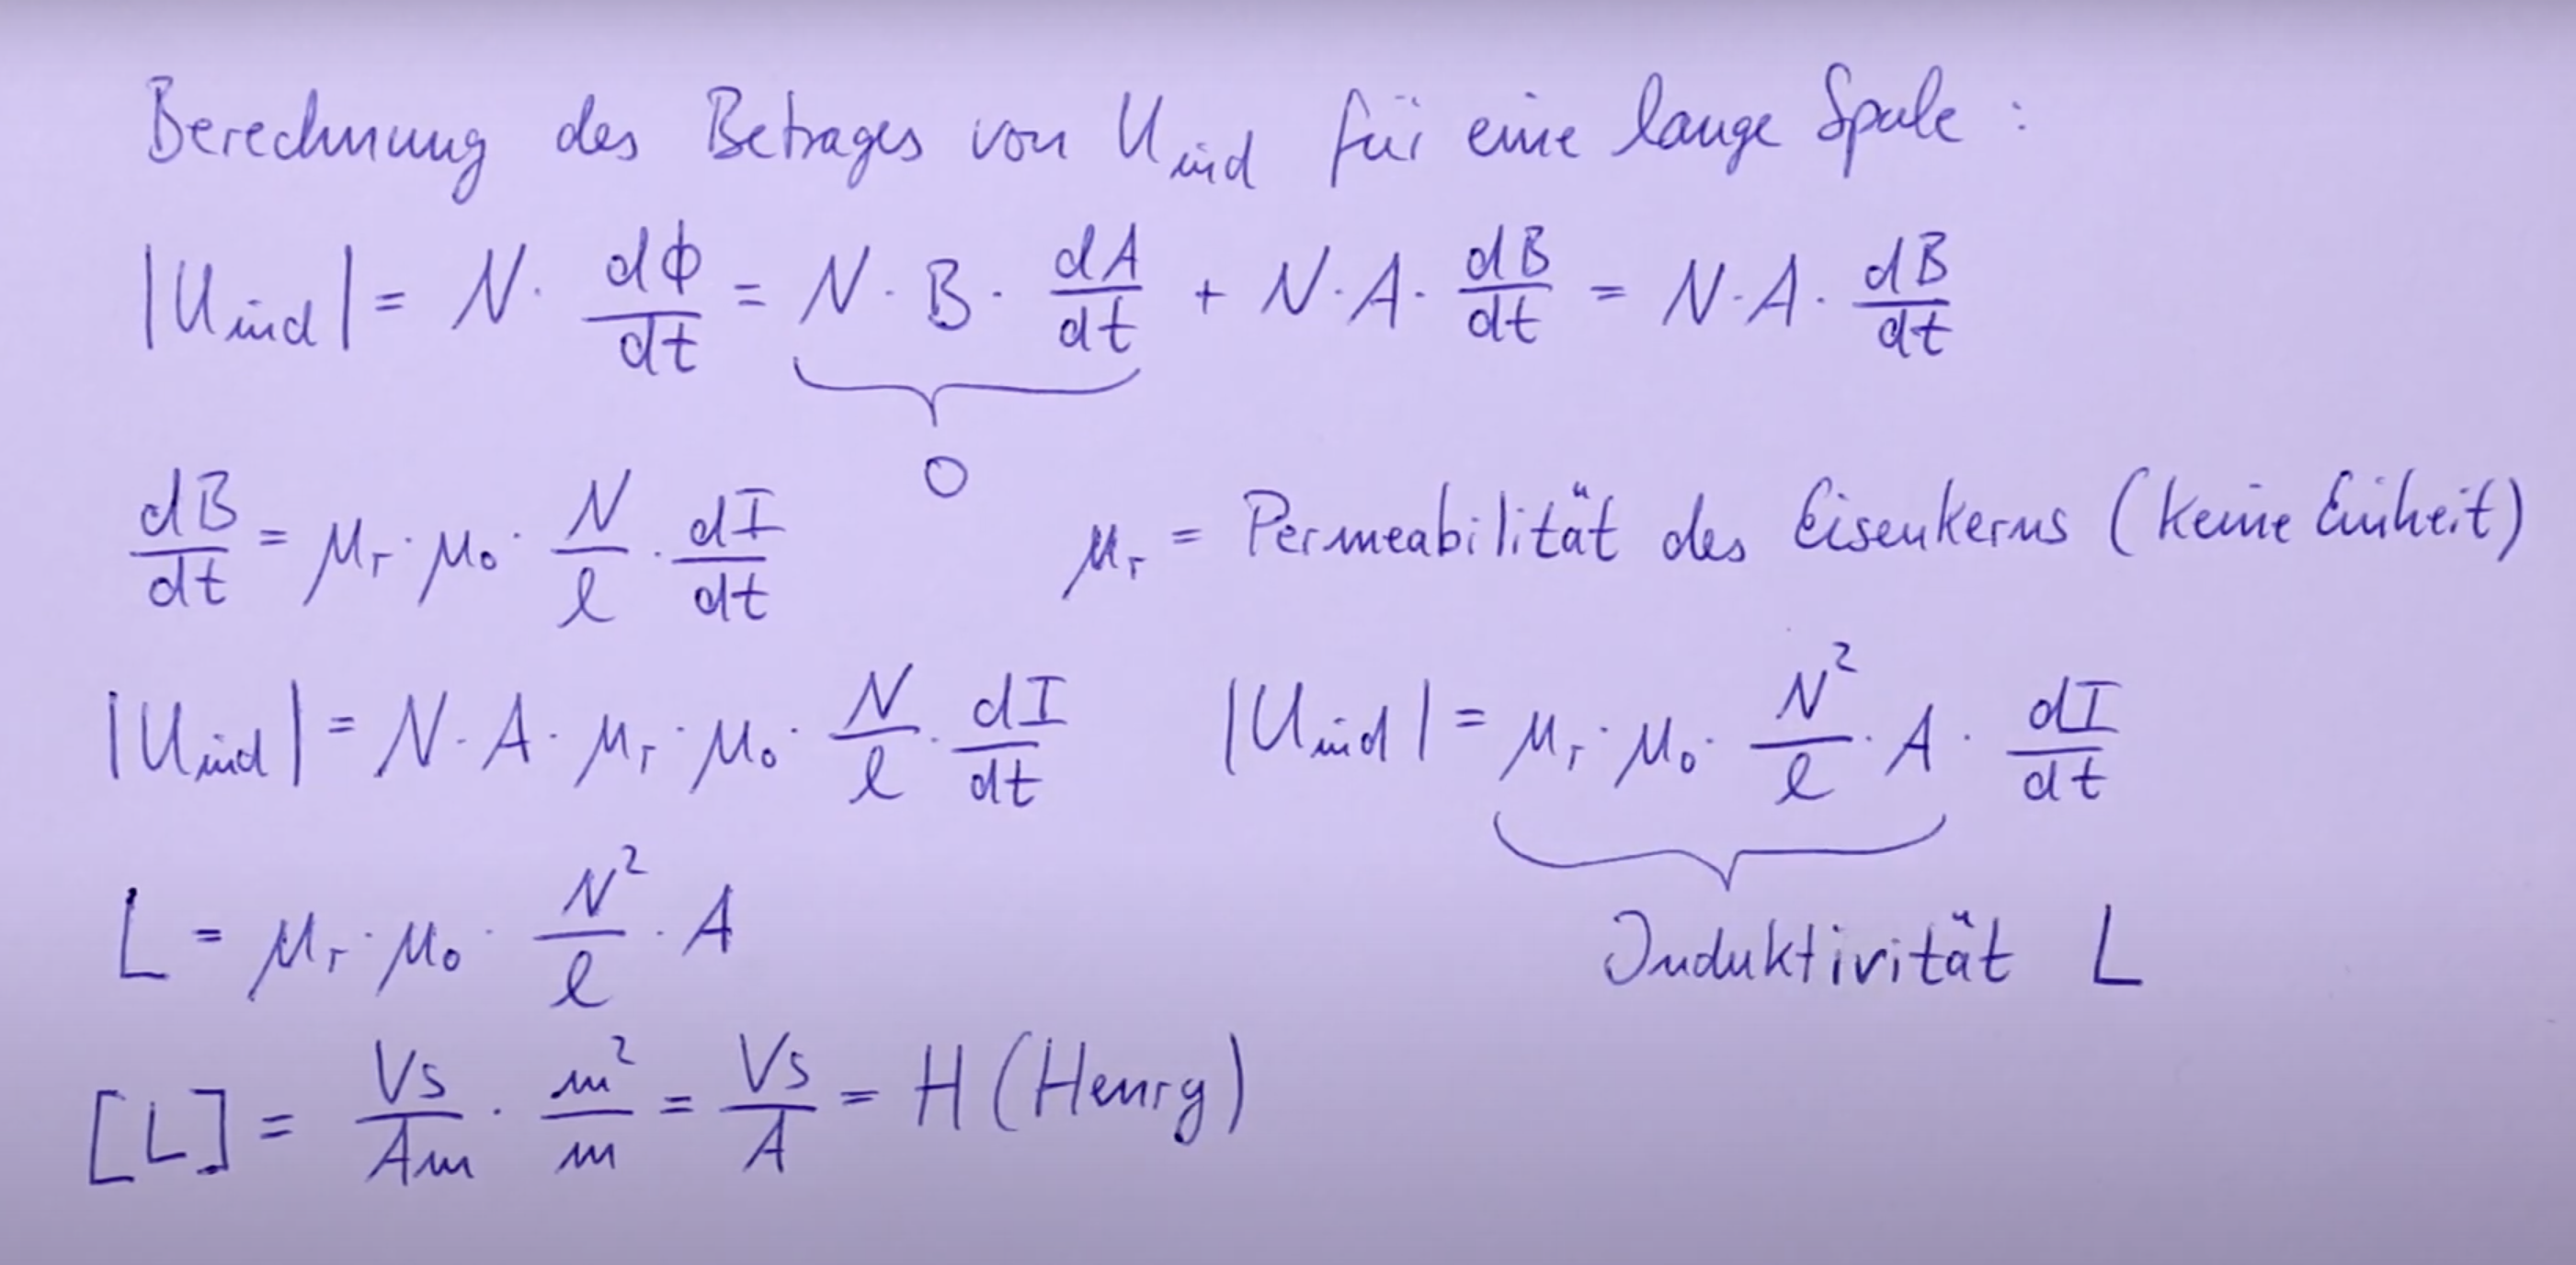 Berechnung des Betrages von U_ind für eine lange Spule :
|U_ind| = N · dϕ/dt = N · B · dA/dt + N · A · dB/dt = N · A · dB/dt
0
dB/dt = μ_r · μ_0 · N/l · dI/dt
μ_r = Permeabilität des Eisenkerns (keine Einheit)
|U_ind| = N · A · μ_r · μ_0 · N/l · dI/dt
|U_ind| = μ_r · μ_0 · N²/l · A · dI/dt
Induktivität L
L = μ_r · μ_0 · N²/l · A
[L] = Vs/Am · m²/m = Vs/A = H (Henry)